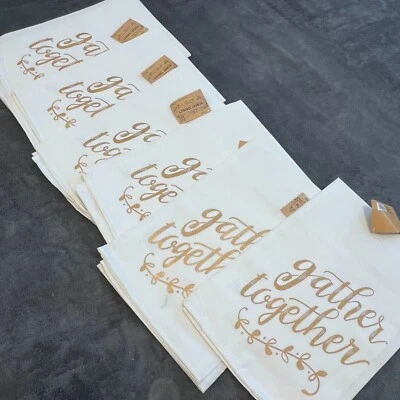 ga
toget
ga
toget
ga
tog
ga
toge
gathe
togeth
gather
together